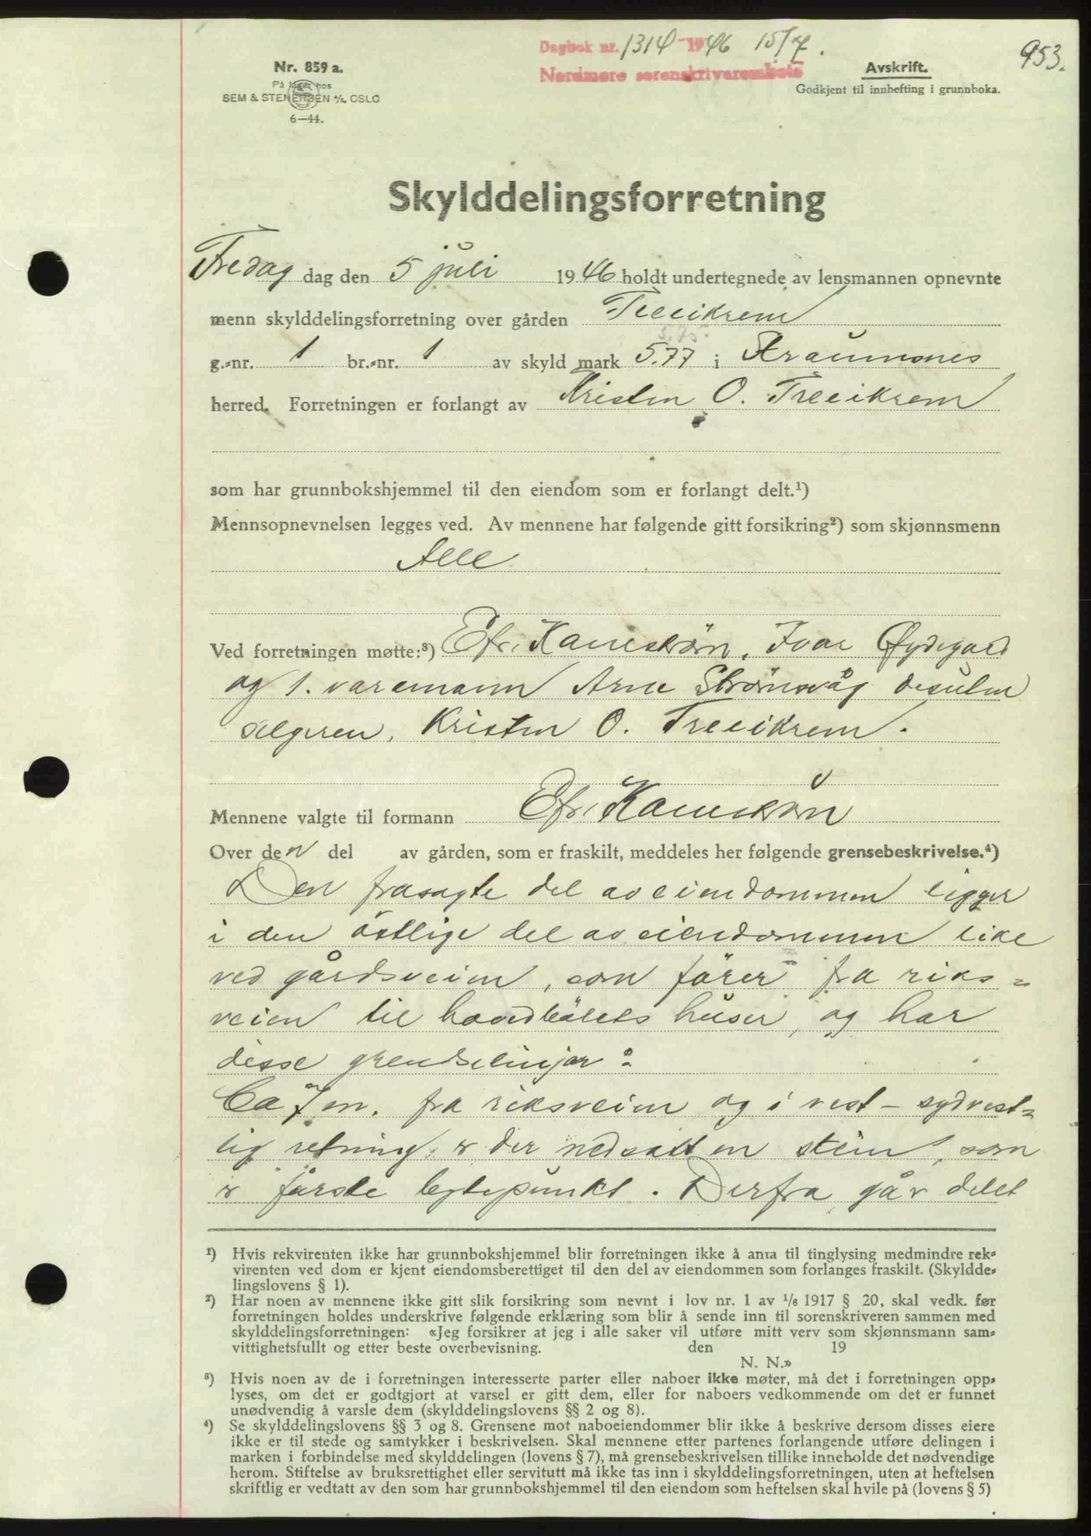 Dagbok nr. 1314 1946 15/7.
953.
Nordmøre sorenskriverembete
Nr. 859 a.
På lager hos
SEM & STENERSEN A/S, OSLO
6—44.
Avskrift.
Godkjent til innhefting i grunnboka.
Skylddelingsforretning
Fredag dag den 5 juli 1946 holdt undertegnede av lensmannen opnevnte
menn skylddelingsforretning over gården Treeikrem
5.75
g.-nr. 1 br.-nr. 1 av skyld mark 5.77 i Straumsnes
herred. Forretningen er forlangt av Kristen O. Treeikrem
som har grunnbokshjemmel til den eiendom som er forlangt delt.¹)
Mennsopnevnelsen legges ved. Av mennene har følgende gitt forsikring²) som skjønnsmenn
Alle
Ved forretningen møtte:³) Ivar Øydegard
og 1. varamann Arne Strömsvåg desuten
selgeren, Kristen O. Treeikrem.
Mennene valgte til formann
Over den del av gården, som er fraskilt, meddeles her følgende grensebeskrivelse.⁴)
Den frasagte del av eiendommen ligger
i den östlige del av eiendommen like
ved gårdsveien, som förer fra riks-
veien til hovedbölets huser, og har
disse grenselinjer:
Ca 7 m. fra riksveien og i vest-sydvest-
lig retning er der nedsatt en stein, som
er förste bytepunkt. Derfra går delet
¹) Hvis rekvirenten ikke har grunnbokshjemmel blir forretningen ikke å anta til tinglysing medmindre rek-
virenten ved dom er kjent eiendomsberettiget til den del av eiendommen som forlanges fraskilt. (Skyldde-
lingslovens § 1).
²) Har noen av mennene ikke gitt slik forsikring som nevnt i lov nr. 1 av 1/8 1917 § 20, skal vedk. før
forretningen holdes underskrive følgende erklæring som blir å sende inn til sorenskriveren sammen med
skylddelingsforretningen: «Jeg forsikrer at jeg i alle saker vil utføre mitt verv som skjønnsmann sam-
vittighetsfullt og etter beste overbevisning. den 19
N. N.»
³) Hvis noen av de i forretningen interesserte parter eller naboer ikke møter, må det i forretningen opp-
lyses, om det er godtgjort at varsel er gitt dem, eller for naboers vedkommende om det er funnet
unødvendig å varsle dem (skylddelingslovens §§ 2 og 8).
⁴) Se skylddelingslovens §§ 3 og 8. Grensene mot naboeiendommer blir ikke å beskrive dersom disses eiere
ikke er til stede og samtykker i beskrivelsen. Skal mennene etter partenes forlangende utføre delingen i
marken i forbindelse med skylddelingen (lovens § 7), må grensebeskrivelsen tillike inneholde det nødvendige
herom. Stiftelse av bruksrettighet eller servitutt må ikke tas inn i skylddelingsforretningen, uten at heftelsen
skriftlig er vedtatt av den som har grunnbokshjemmel til den eiendom som heftelsen skal hvile på (lovens § 5)